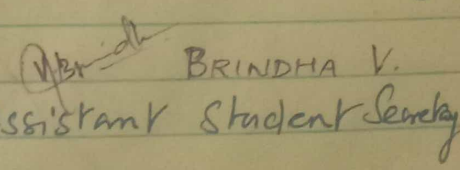 BRINDHA V.
ssistant Student Secretary